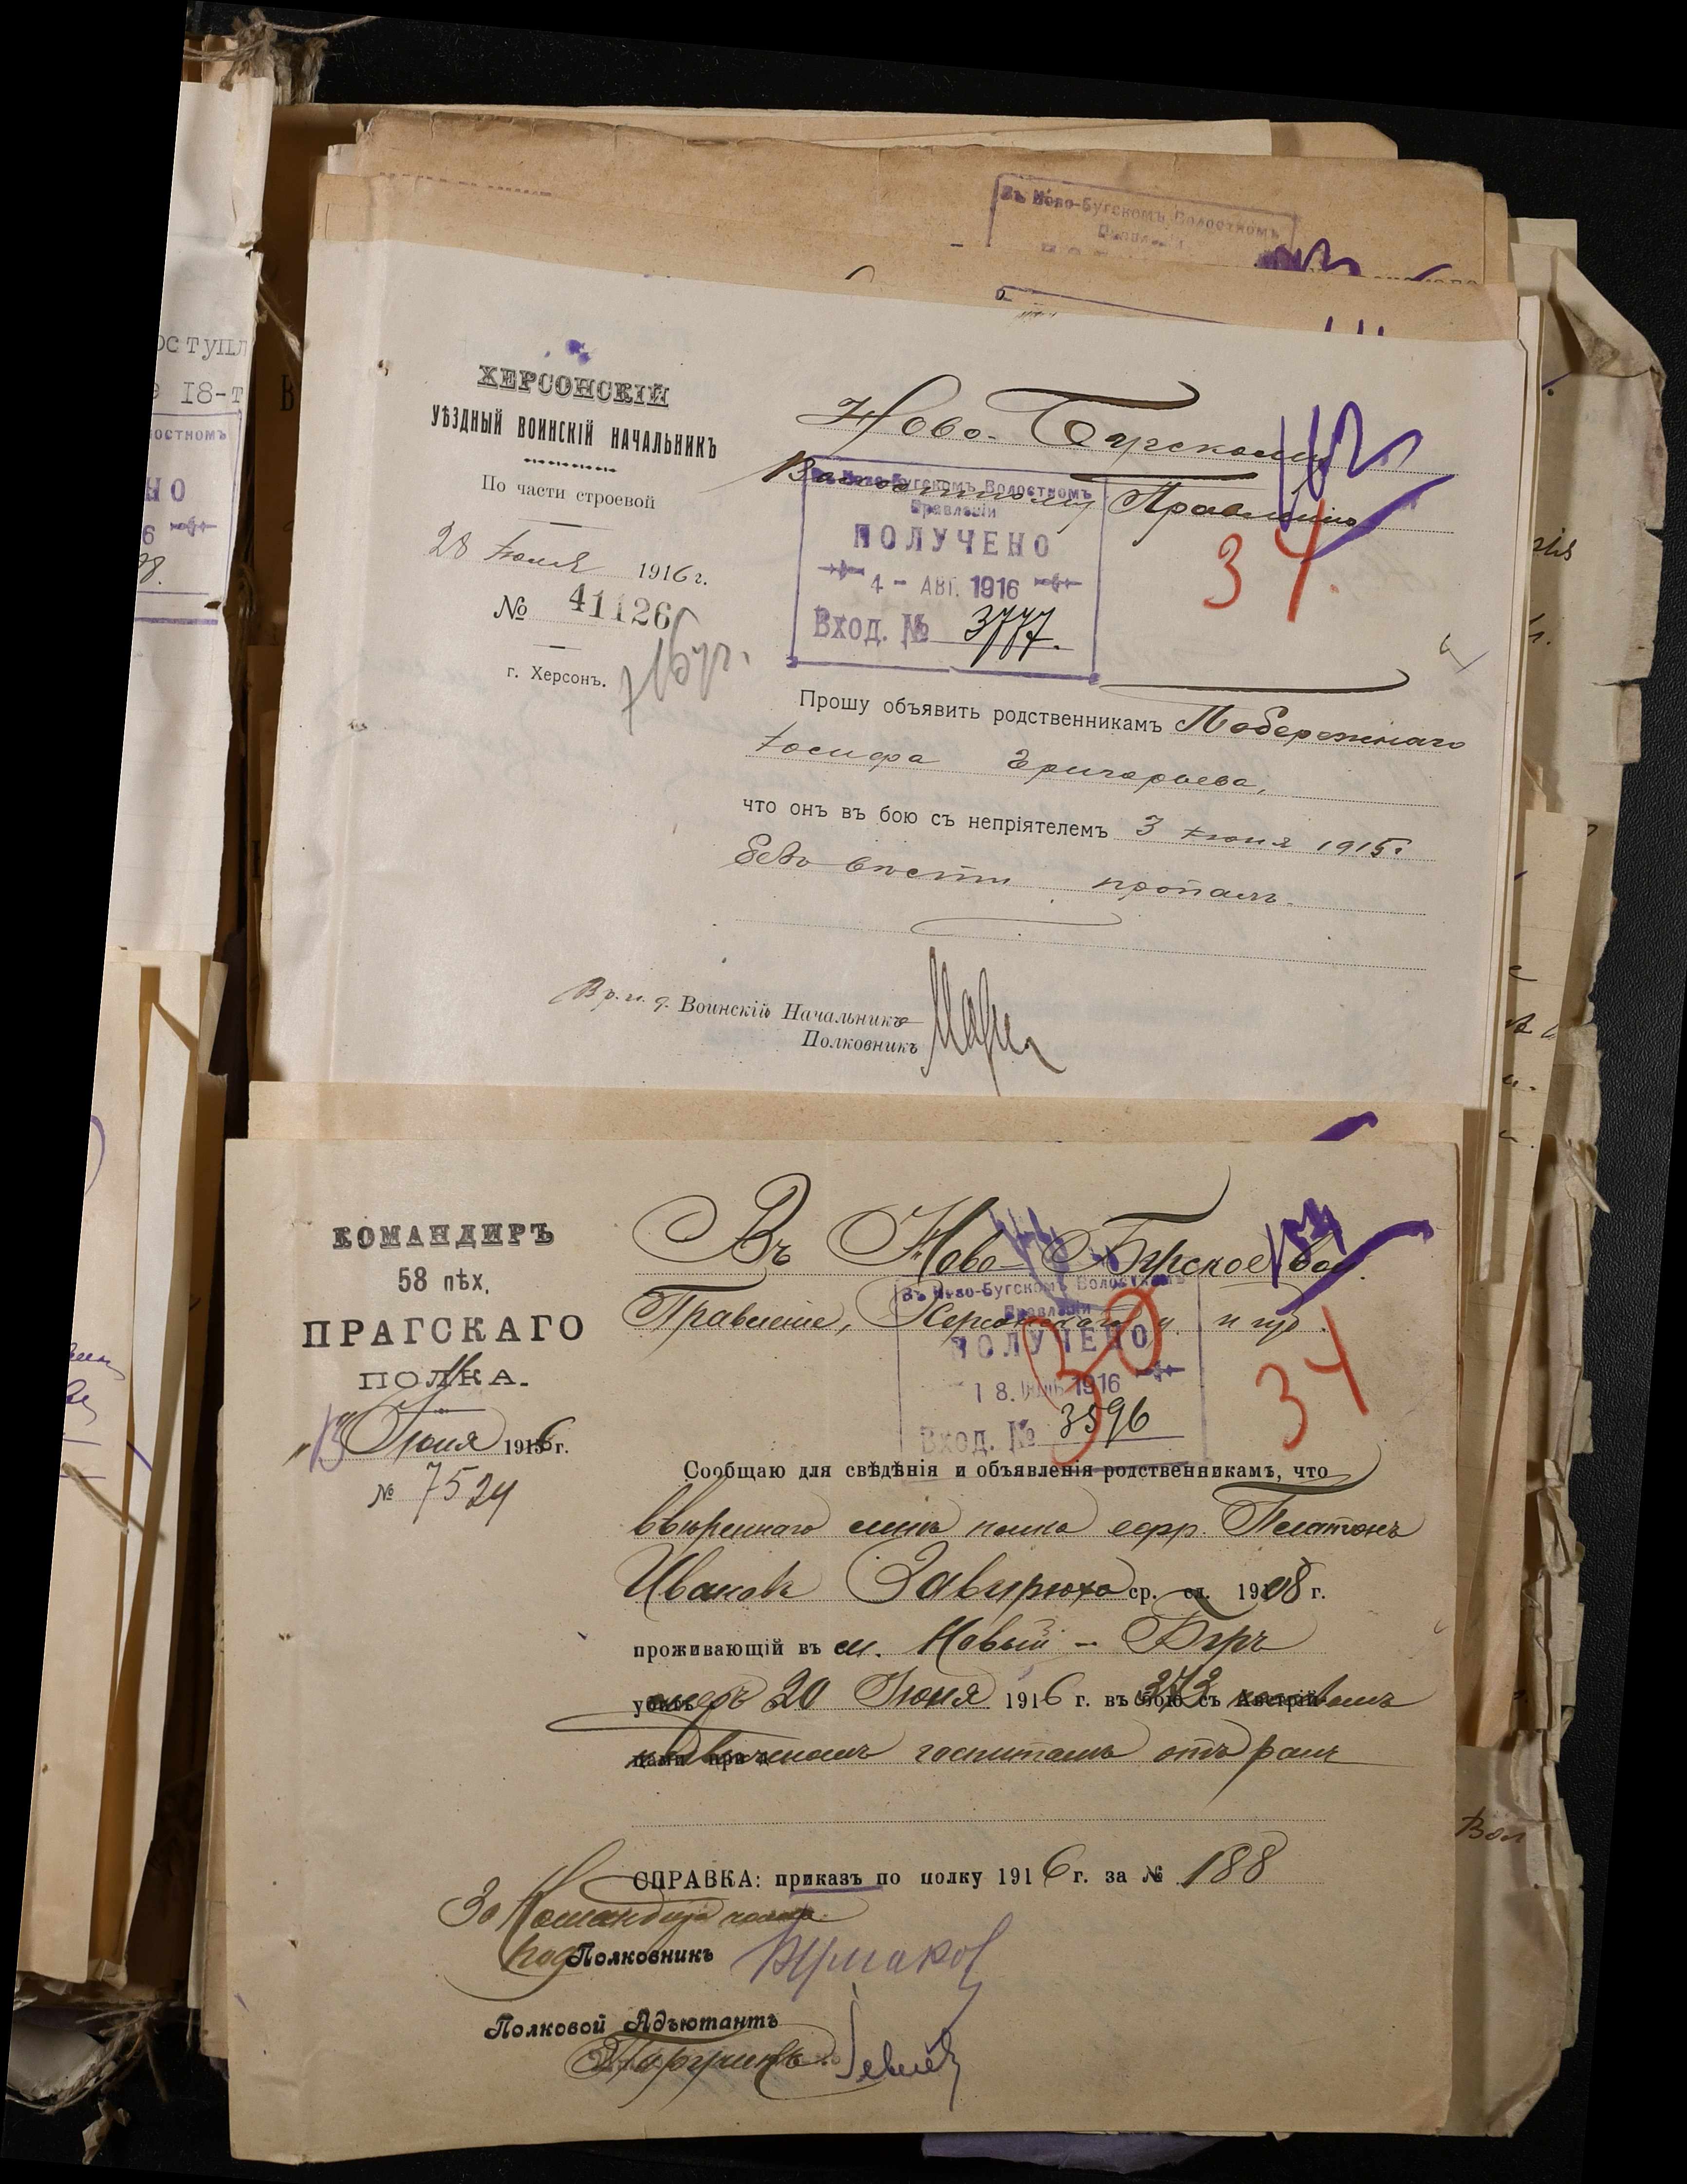 Въ Ново-Бугскомъ Волостномъ
оступл
18-т
остномъ
НО
6
ХЕРСОНСКІЙ
УѢЗДНЫЙ ВОИНСКІЙ НАЧАЛЬНИКЪ
По части строевой
28 Іюля 1916 г.
№ 41126
г. Херсонъ.
Ново-Бугскому
Волостному Правленію
162
34.
Въ Ново-Бугскомъ Волостномъ
Правленіи
ПОЛУЧЕНО
4 - АВГ. 1916
Вход. № 3777.
Прошу объявить родственникамъ Побережнаго
Іосифа Григорьева,
что онъ въ бою съ непріятелемъ 3 Іюня 1915 г.
безъ вѣсти пропалъ.
Вр. и. д. Воинскій Начальникъ
Полковникъ
КОМАНДИРЪ
58 пѣх.
ПРАГСКАГО
ПОЛКА.
13 Іюля 1916 г.
№ 7524
Въ Ново-Бугское вол.
Правленіе, Херсонскаго у. и губ.
30
34
Въ Ново-Бугскомъ Волостномъ
Правленіи
ПОЛУЧЕНО
18. ІЮЛЬ 1916
Вход. № 3596
Сообщаю для свѣдѣнія и объявленія родственникамъ, что
ввѣреннаго мнѣ полка ефр. Платонъ
Ивановъ Завирюха ср. сл. 1908 г.
проживающій въ м. Новый-Бугъ
умеръ 20 Іюня 1916 г. въ 272 полевомъ
подвижномъ госпиталѣ отъ ранъ
СПРАВКА: приказъ по полку 1916 г. за № 188
За Командира полка
подПолковникъ
Полковой Адъютантъ
Поручикъ
Вол